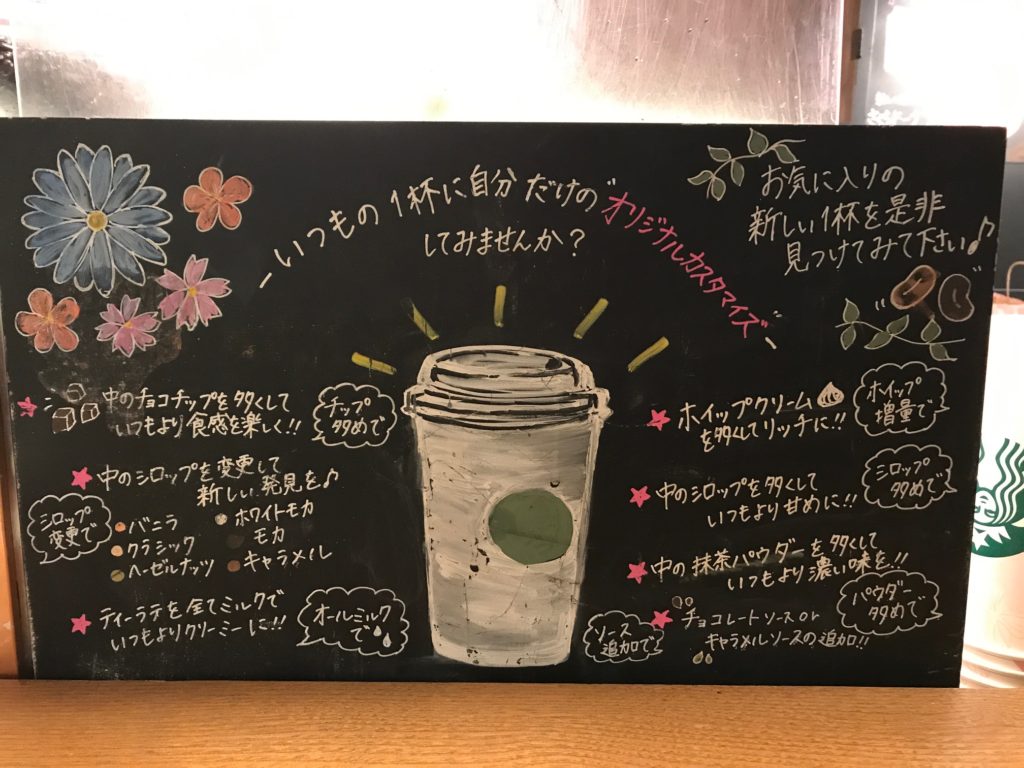 いつもの1杯に自分だけの"オリジナルカスタマイズ"
してみませんか？
お気に入りの
新しい1杯を是非
見つけてみて下さい♪
中のチョコチップを多くして
いつもより食感を楽しく!!
チップ
多めで
中のシロップを変更して
新しい発見を♪
シロップ
変更で
バニラ
クラシック
ヘーゼルナッツ
ホワイトモカ
モカ
キャラメル
ティーラテを全てミルクで
いつもよりクリーミーに!!
オールミルク
で
ホイップクリーム
を多くしてリッチに!!
ホイップ
増量で
中のシロップを多くして
いつもより甘めに!!
シロップ
多めで
中の抹茶パウダーを多くして
いつもより濃い味を!!
パウダー
多めで
チョコレートソースor
キャラメルソースの追加!!
ソース
追加で